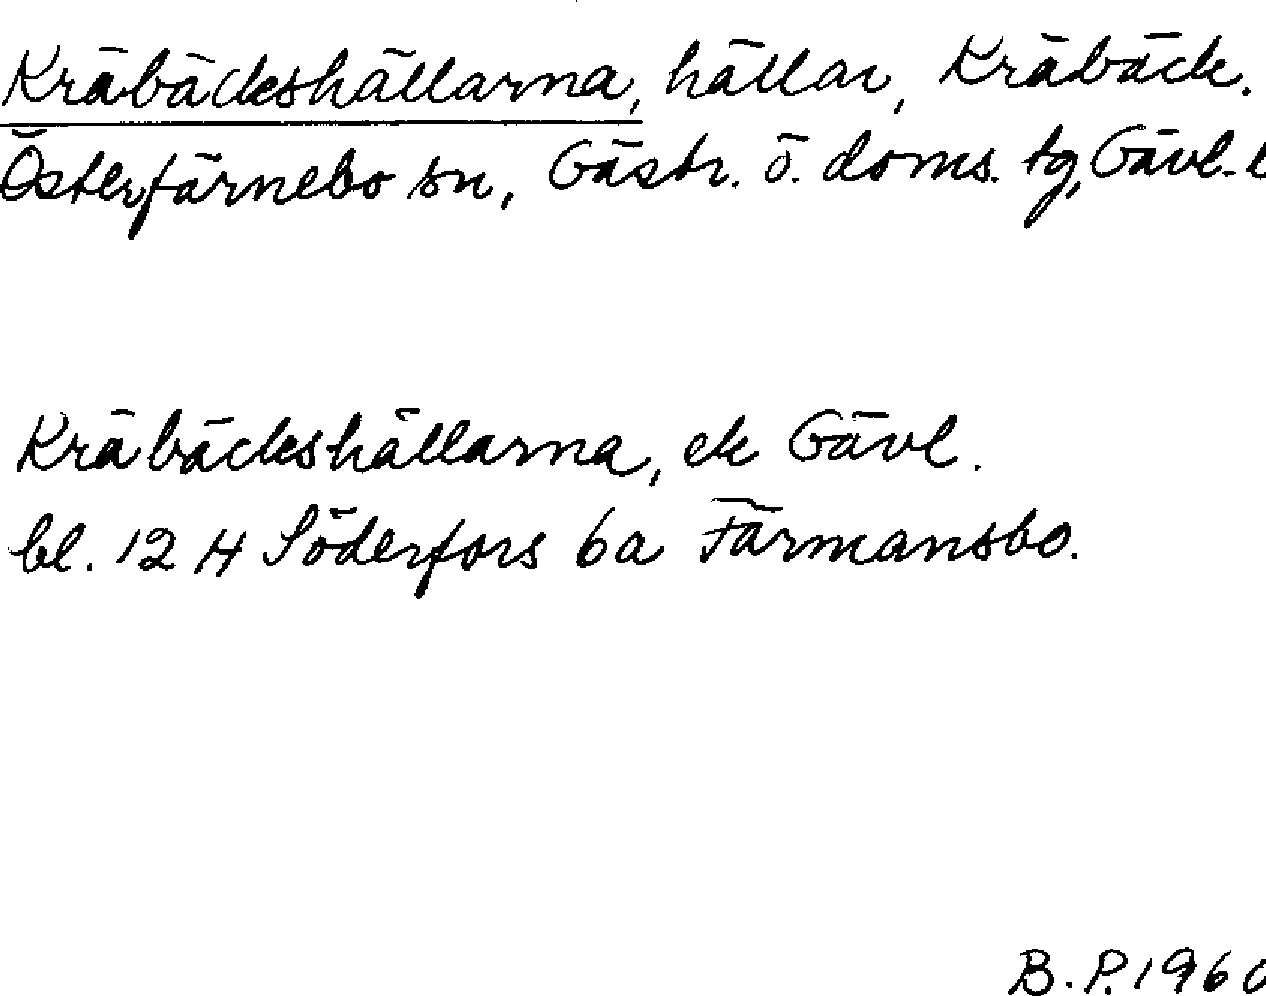 Kräbäckshällarna, hällar, Kräbäck.
Österfärnebo sn, Gästr. ö. doms. tg, Gävl. l
Kräbäckshällarna, ek Gävl.
bl. 12 H Söderfors 6a Färmansbo.
B.P. 1960